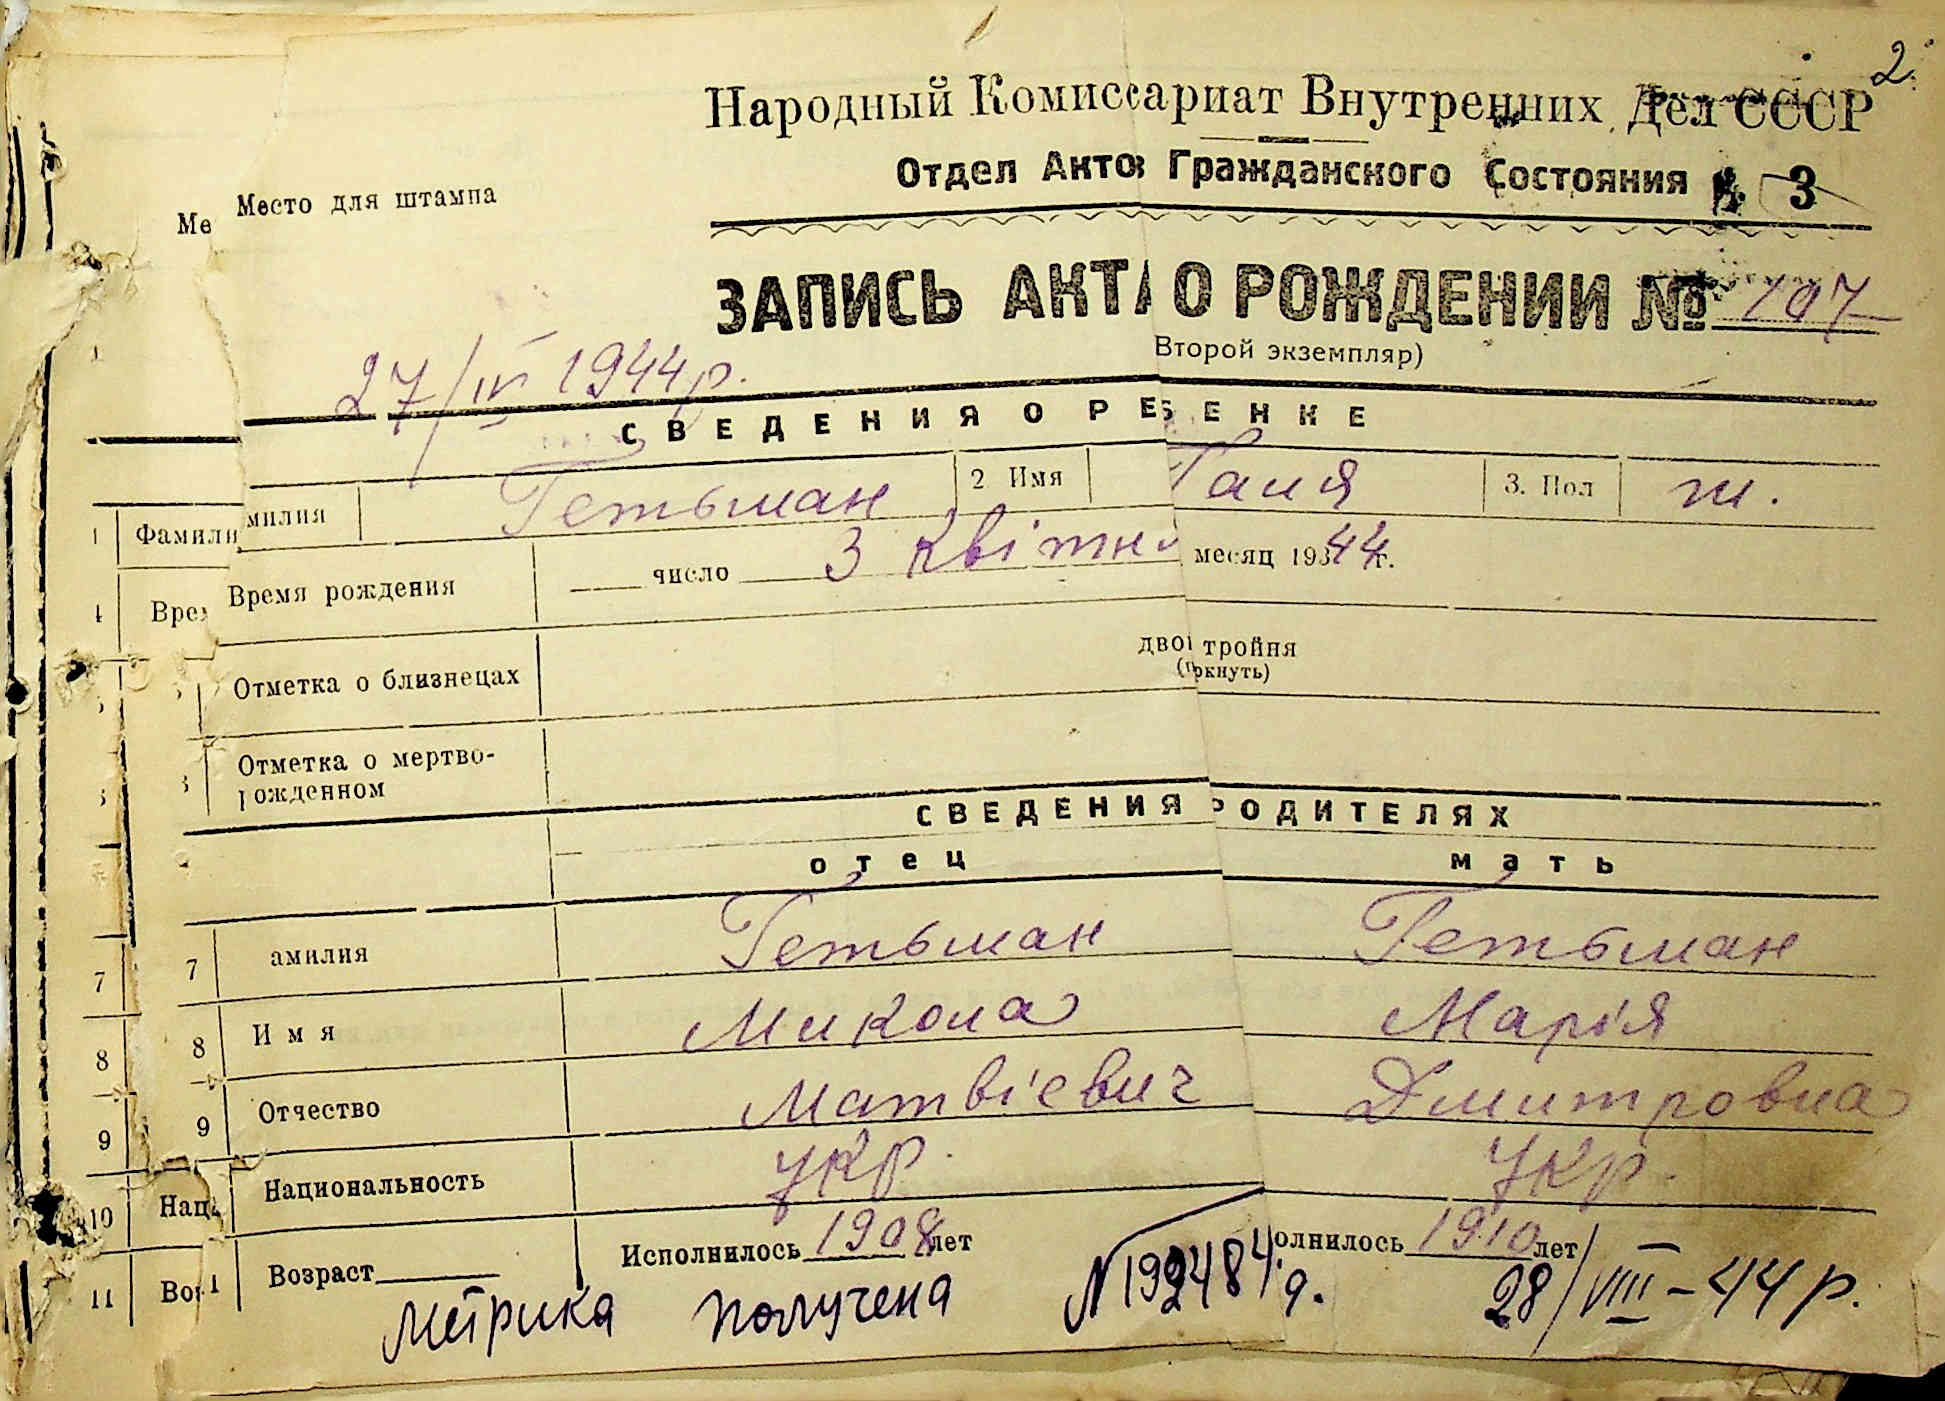 2.
Народный Комиссариат Внутренних Дел СССР
Отдел Актов Гражданского Состояния
3
Ме Место для штампа
ЗАПИСЬ АКТА О РОЖДЕНИИ № 107
Второй экземпляр)
27/IV 1944 р.
СВЕДЕНИЯ О РЕБЕНКЕ
1 Фамили милия Гетьман 2 Имя Галя 3. Пол ж.
4 Врем Время рождения число 3 квітня месяц 1944 г.
Отметка о близнецах двой тройня
(ркнуть)
Отметка о мертво-
рожденном
СВЕДЕНИЯ РОДИТЕЛЯХ
отец мать
7 7 амилия Гетьман Гетьман
8 8 Имя Микола Марія
9 9 Отчество Матвієвич Дмитровна
10 Нац Национальность укр. укр.
11 Воз 1 Возраст Исполнилось 1908 лет олнилось 1910 лет
Метрика получена N 192484 28/VIII-44 р.